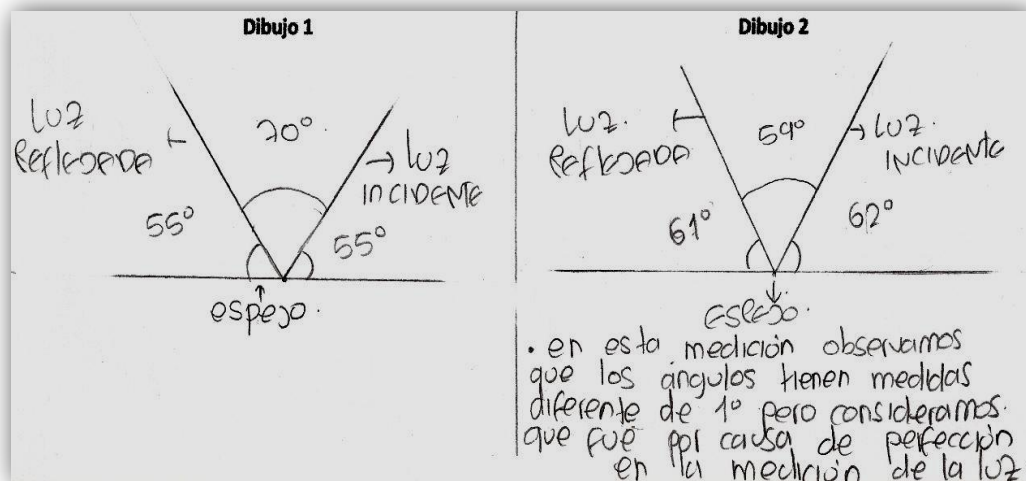 Dibujo 1
LUZ
REFLEJADA
70°
LUZ
INCIDENTE
55°
55°
espejo.
Dibujo 2
LUZ.
REFLEJADA
59°
LUZ.
INCIDENTE
61°
62°
ESPEJO.
• en esta medición observamos
que los ángulos tienen medidas
diferente de 1° pero consideramos.
que fué por causa de perfección
en la medición de la luz